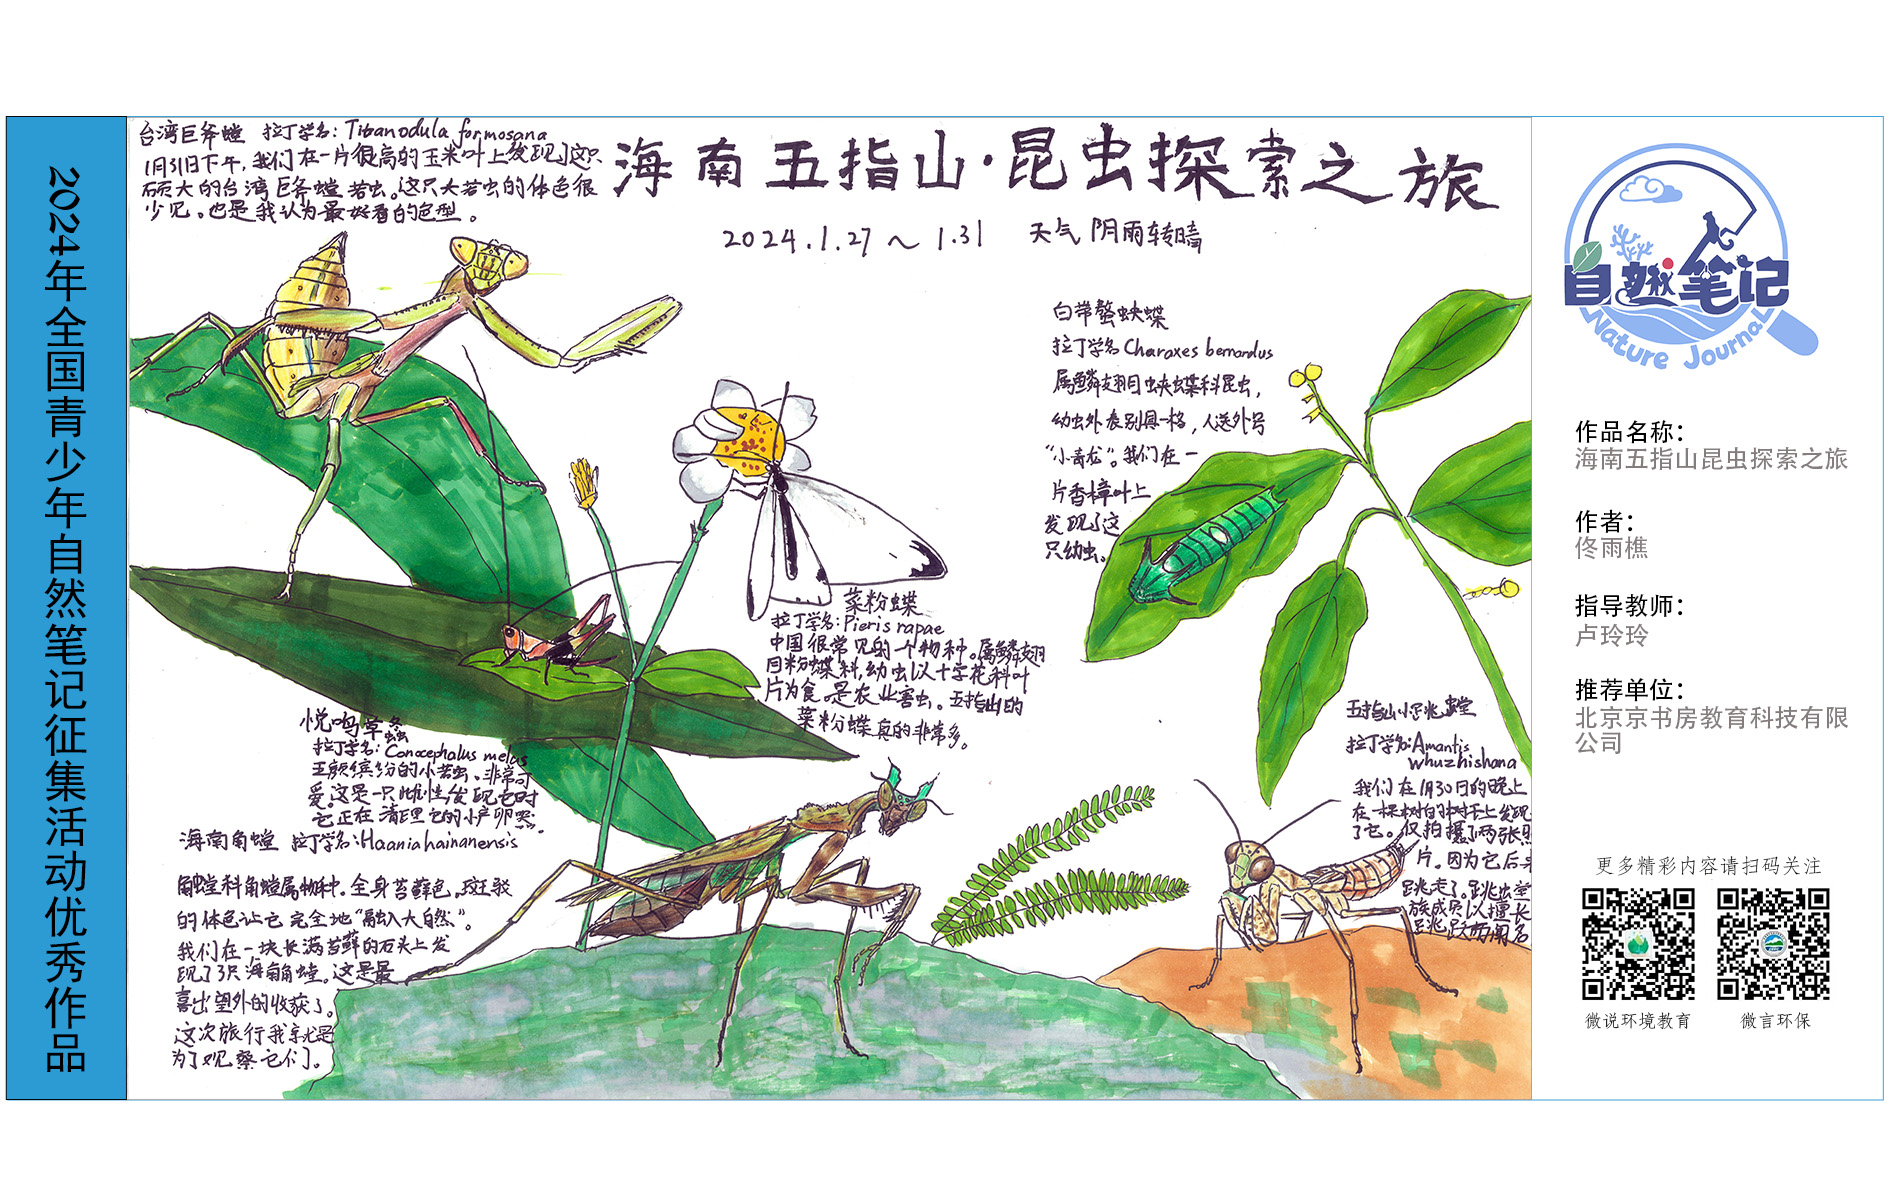 2024年全国青少年自然笔记征集活动优秀作品
海南五指山·昆虫探索之旅
2024.1.27～1.31 天气 阴雨转晴
台湾巨斧螳 拉丁学名: Titanodula formosana
1月31日下午,我们在一片很高的玉米叶上发现了这只
硕大的台湾巨斧螳若虫。这只大若虫的体色很
少见。也是我认为最好看的色型。
白带螯蛱蝶
拉丁学名 Charaxes bernardus
属鳞翅目蛱蝶科昆虫,
幼虫外表别具一格,人送外号
“小青龙”。我们在一
片香樟叶上
发现了这
只幼虫。
菜粉蝶
拉丁学名: Pieris rapae
中国很常见的一个物种。属鳞翅
目粉蝶科,幼虫以十字花科叶
片为食。是农业害虫。五指山的
菜粉蝶真的非常多。
悦鸣草螽
拉丁学名: Conocephalus melas
五颜缤纷的小若虫。非常可
爱。这是一只雌性,发现它时
它正在清理它的小产卵器。
海南角螳 拉丁学名: Haania hainanensis
角螳科角螳属物种。全身苔藓色。斑驳
的体色让它完全地“融入大自然”。
我们在一块长满苔藓的石头上发
现了3只海南角螳。这是最
喜出望外的收获了。
这次旅行我就是
为了观察它们。
五指山小跳螳
拉丁学名: Amantis
whuzhishana
我们在1月30日的晚上
在一棵树的树干上发现
了它。仅拍摄了两张照
片。因为它后来
跳走了。跳螳
族成员以擅长
跳跃而闻名
自然笔记
Nature Journal
作品名称：
海南五指山昆虫探索之旅
作者：
佟雨樵
指导教师：
卢玲玲
推荐单位：
北京京书房教育科技有限
公司
更多精彩内容请扫码关注
微说环境教育
微言环保